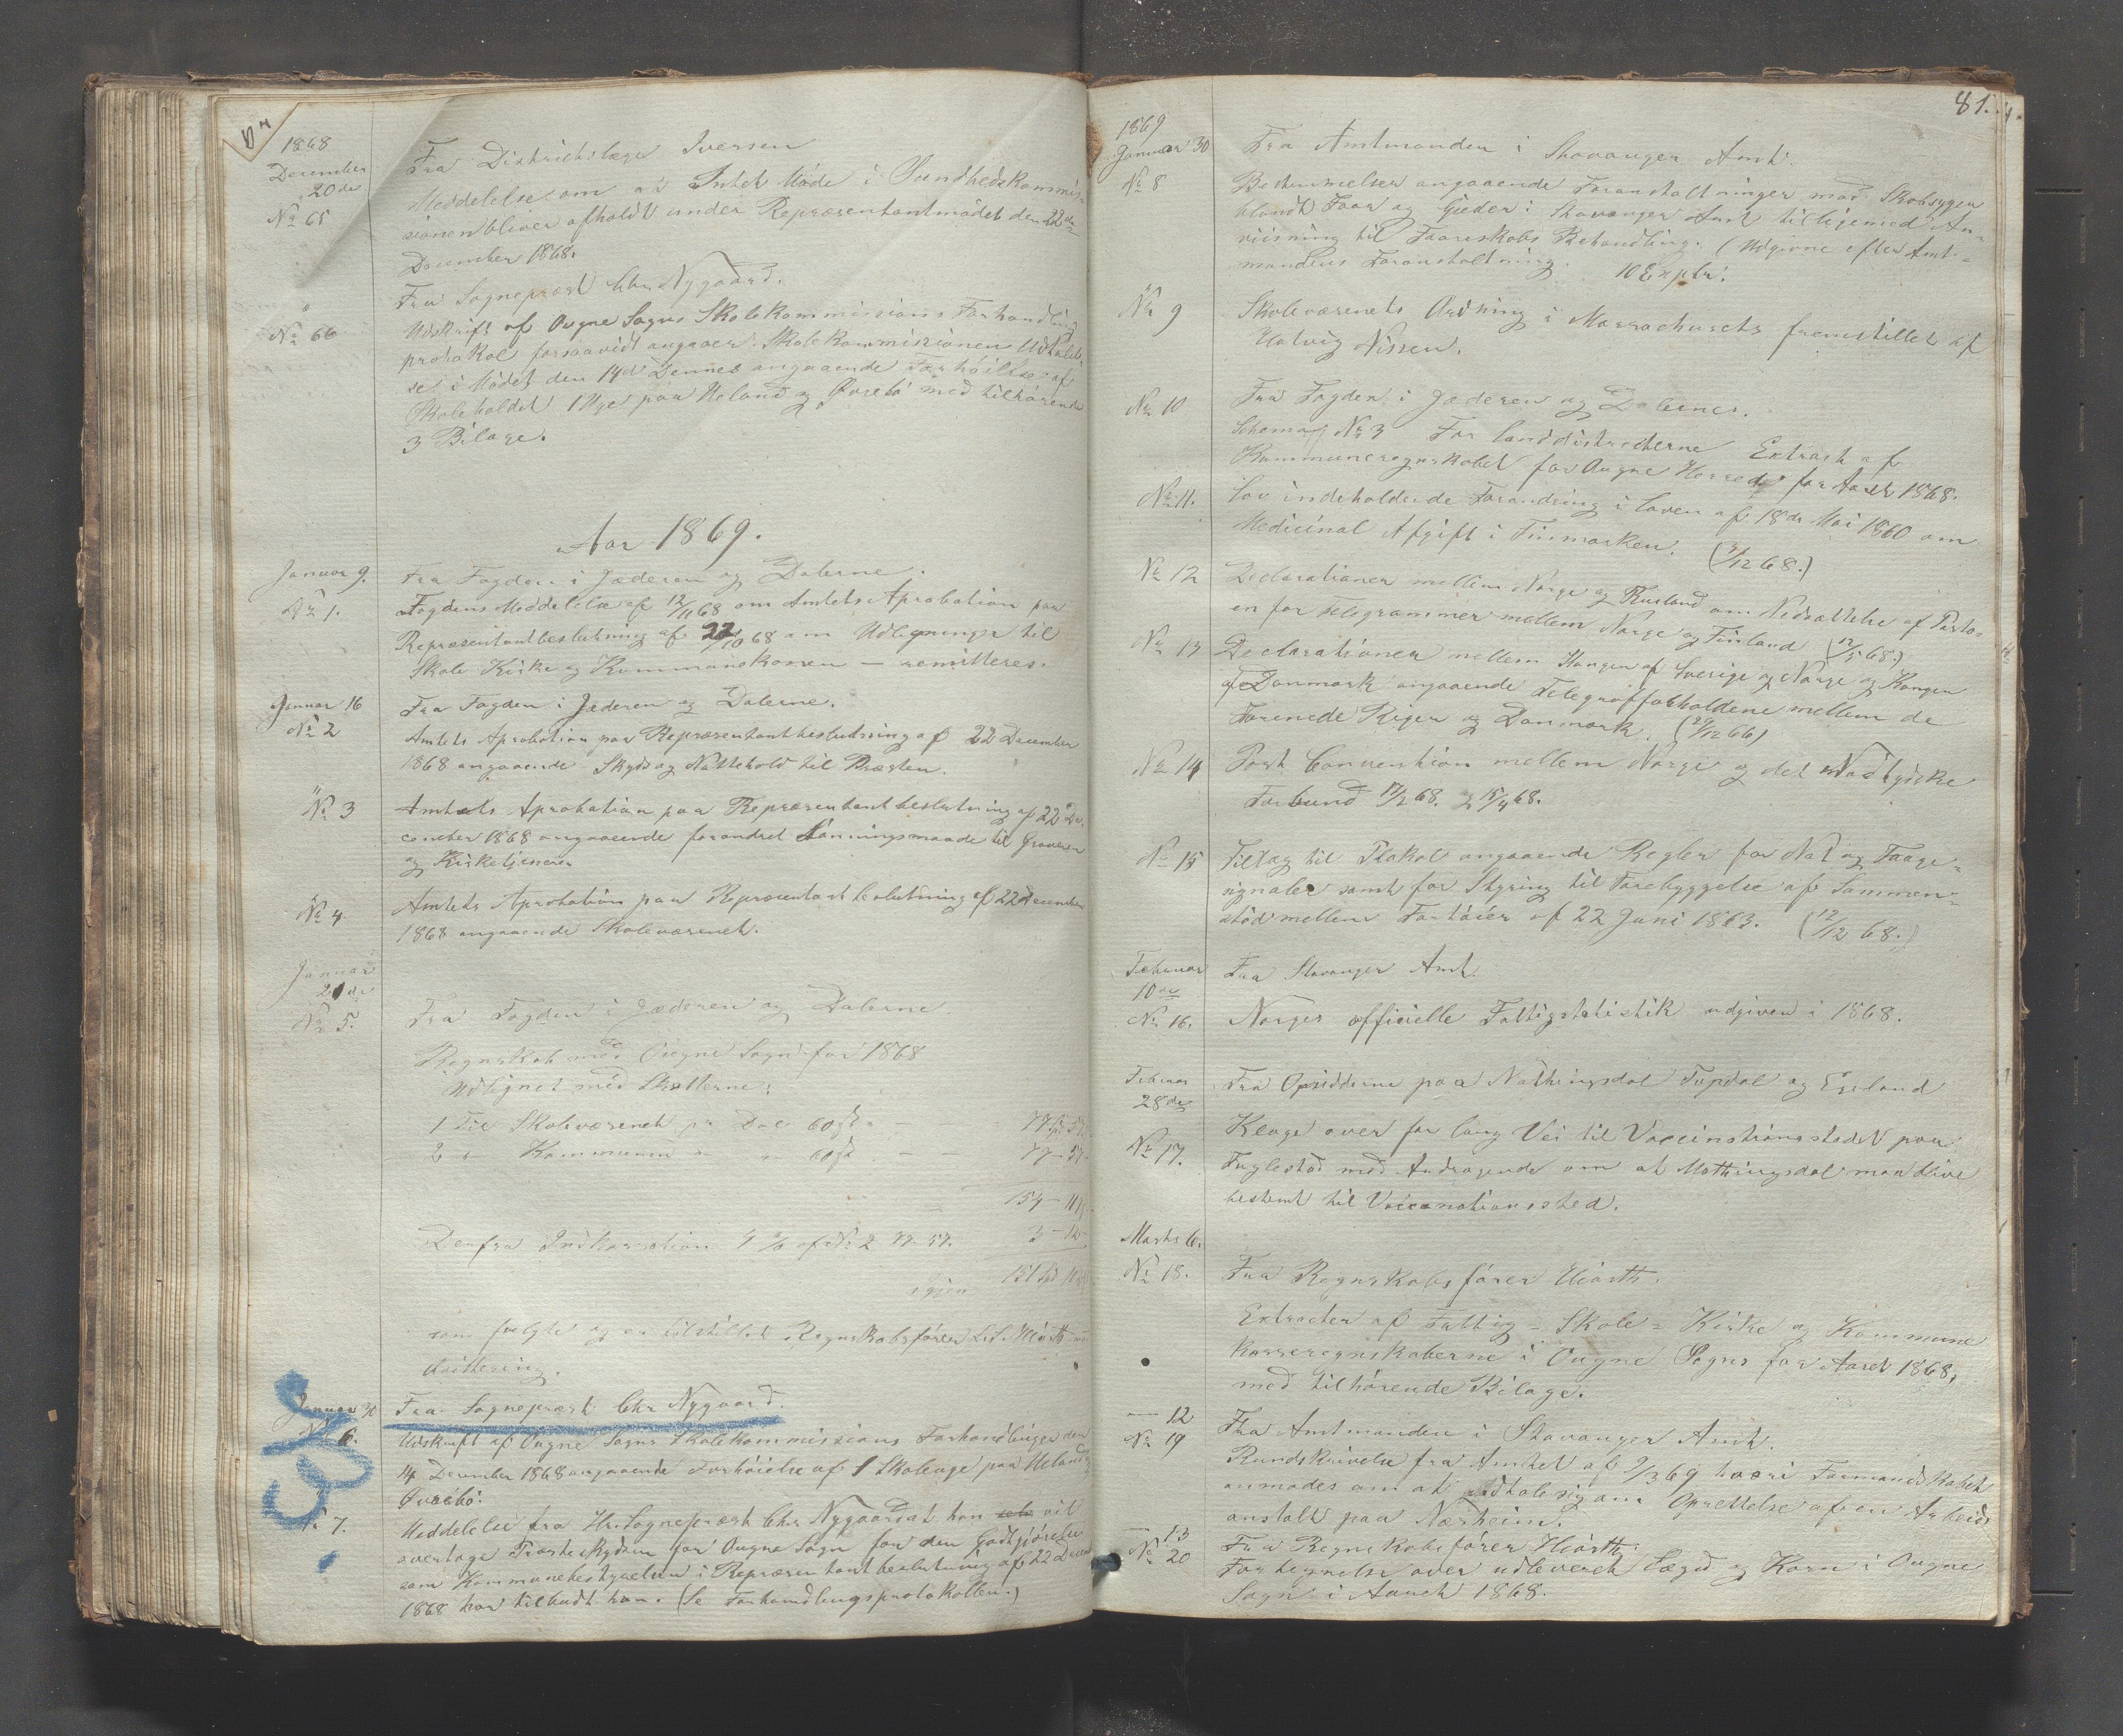 1868
December
20de
No 65
Fra Districtslæge Iversen
Meddelelse om at Intet Möde i Sundhedskommis-
sionen bliver afholdt under Repræsentantmödet den 22de
December 1868.
"
No 66
Fra Sogneprest Chr. Nygaard.
Udskrift af Ougne Sogns Skolekommissions Forhandlings
protokol forsaavidt angaaer Skolekommissionen Udtalel-
se i Mödet den 14de Dennes angaaende Forhöielse af
Skoleholdet 1 Uge paa Ueland og Övrebö med tilhörende
3 Bilage.
Aar 1869.
Januar 9.
No 1.
Fra Fogden i Jæderen og Dalerne.
Fogdens Meddelelse af 12/11 68 om Amtets Aprobation paa
Repræsentantbeslutning af 22/10 68 om Udligninger til
Skole Kirke og Kommunekassen — remitteres.
Januar 16
No 2
Fra Fogden i Jæderen og Dalerne.
Amtets Aprobation paa Repræsentantbeslutning af 22 December
1868 angaaende Skyds og Nattehold til Præsten.
"
No 3
Amtets Aprobation paa Repræsentantbeslutning af 22 De-
cember 1868 angaaende forandret Lönningsmaade til Graveren
og Kirketjeneren
"
No 4
Amtets Aprobation paa Repræsentantbeslutning af 22 December
1868 angaaende Skolevæsenet.
Januar
20de
No 5.
Fra Fogden i Jæderen og Dalerne
Regnskab med Ougne Sogn for 1868
Udlignet med Skatterne:
1 Til Skolevæsenet pr Dal 60 ß - - 77 57
2 " Kommunen " " 60 ß - - 77 - 57
154 - 114
Derfra Indkassation 4 % af No 2 77. 57. 3 - 12
igjen 151 Spd
som fölger og er tilstillet Regnskabsförer Hiorth
Qvittering.
Januar 30
No 6.
Fra Sogneprest Chr Nygaard.
Udskrift af Ougne Sogns Skolekommissions Forhandlinger den
14 December 1868 angaaende Forhöielse af 1 Skoleuge paa Ueland
Övrebö.
No 7.
Meddelelse fra Hr. Sogneprest Chr. Nygaard at han vil
overtage Præsteskydsen for Ougne Sogn for den Godtgjörelse
som Kommunebestyrelsen i Repræsentantbeslutning af 22 Decem
1868 har tilbudt ham. (Se Forhandlingsprotokollen.)
81.
1869
Januar 30
No 8
Fra Amtmanden i Stavanger Amt.
Bestemmelser angaaende Foranstaltninger mod Skabsygen
blandt Faar og Gjeder i Stavanger Amt tilligemed An-
viisning til Faareskabs Behandling. (Udgivne efter Amt-
mandens Foranstaltning. 10 Explr.
"
No 9
Skolevæsenets Ordning i Massachusets fremstillet af
Hatvig Nissen.
No 10
Fra Fogden i Jæderen og Dalernes.
Schema No 3 For Landdistricterne Extract af
Kommuneregnskabet for Ougne Herred for Aaret 1868.
No 11.
Lov indeholdende Forandring i Loven af 18de Mai 1860 om
Medicinal Afgift i Finmarken. ( /12 68.)
No 12
Declarationer mellem Norge og Rusland om Nedsættelse af Porto-
en for Telegrammer mellem Norge og Finland (12/5 68.)
No 13
Declarationer mellem Kongen af Sverige og Norge og Kongen
af Danmark angaaende Telegrafforholdene mellem de
Forenede Riger og Danmark. (29/12 66)
No 14
Post Convention mellem Norge og det Nordtydske
Forbund 17/2 68. og 15/4 68.
No 15
Tillæg til Plakat angaaende Regler for Nat og Taage-
signaler samt for Styring til Forebyggelse af Sammen-
stöd mellem Fartöier af 22 Juni 1863. (12/12 68.)
Februar
10de
No 16.
Fra Stavanger Amt
Norges officielle Fattigstatistik udgiven i 1868.
Februar
28de
No 17.
Fra Opsidderne paa Mathingsdal Tupdal og Egeland
Klage over for lang Vei til Vaccinationsstedet paa
Fuglestad med Andragende om at Mathingsdal maa blive
bestemt til Vaccinationssted.
Marts 6.
No 18.
Fra Regnskabsförer Hiorth.
Extracter af Fattig- Skole- Kirke og Kommune
kasseregnskaberne i Ougne Sogn for Aaret 1868,
med tilhörende Bilage.
— 12
No 19
Fra Amtmanden i Stavanger Amt.
Rundskrivelse fra Amtet af 9/3 69 hvori Formandskabet
anmodes om at udtale sig om Oprettelse af en Arbeids
anstalt paa Nærheim.
— 13
No 20
Fra Regnskabsförer Hiorth.
Fortegnelse over udleveret Lægd og Korn i Ougne
Sogn i Aaret 1868.